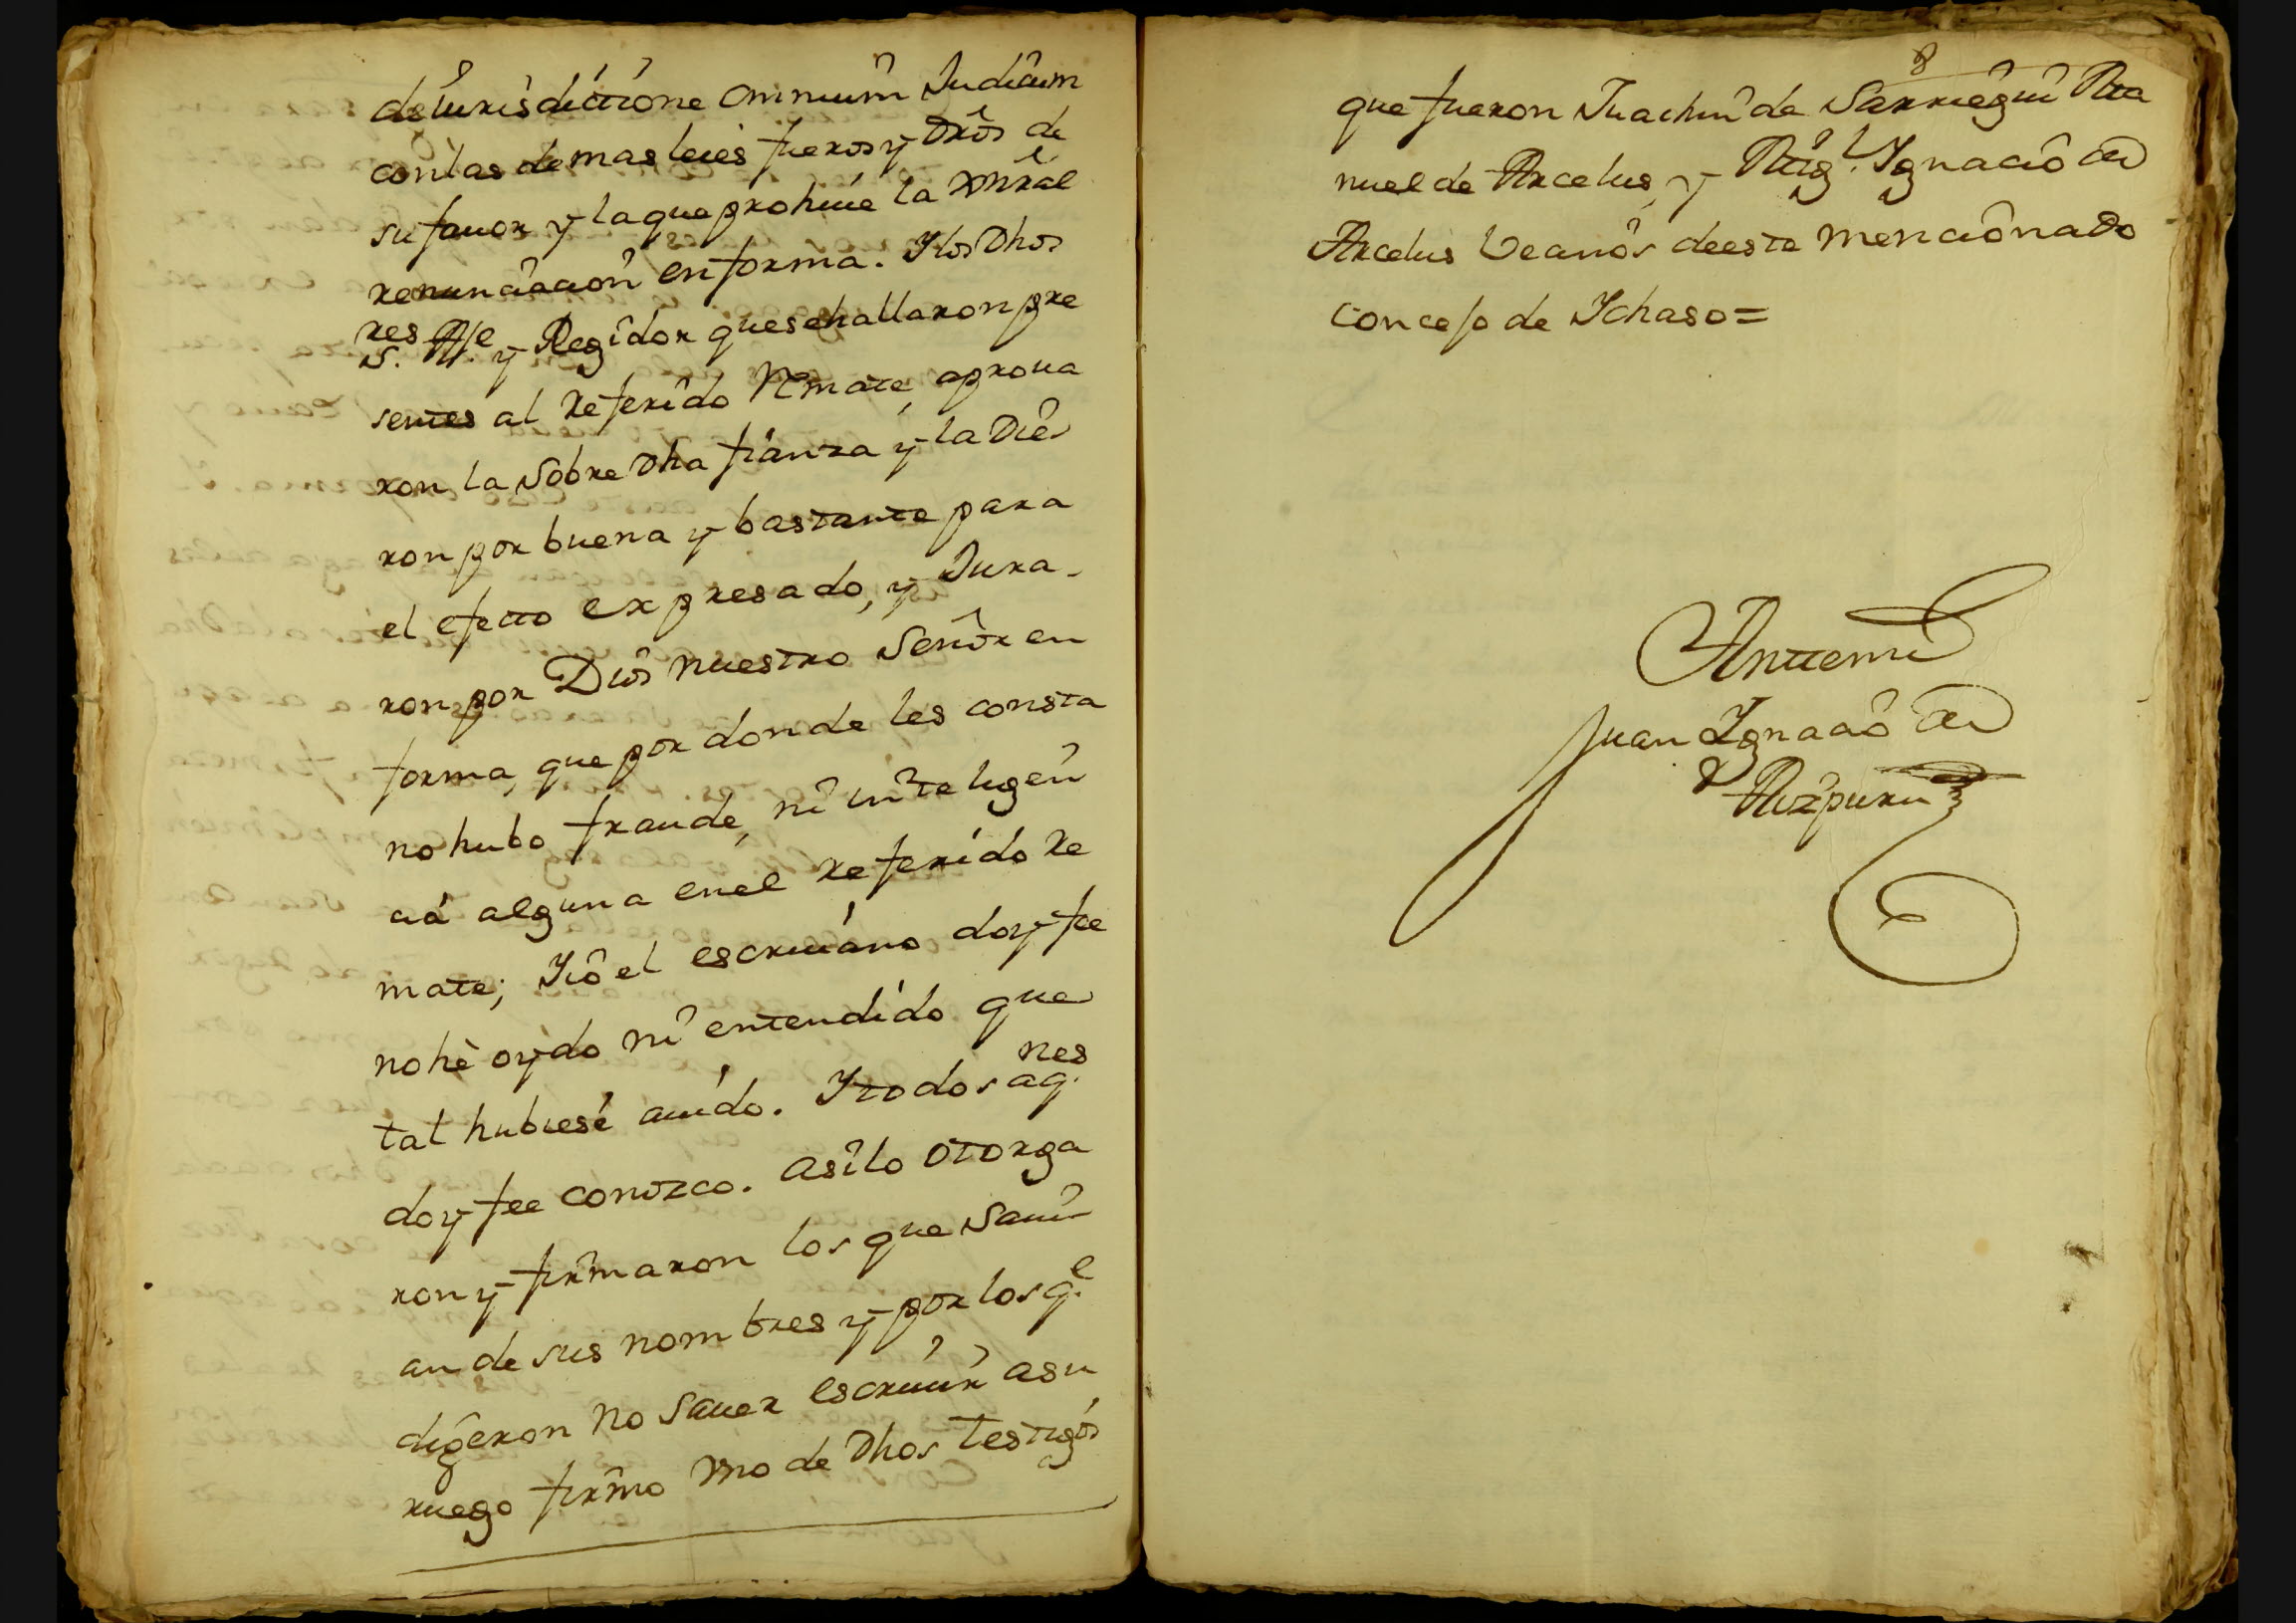 de iurisdictione omnium Judicum
con las demas leies fueros y Dros de
su fauor y la que prohiue la Gnral
renunciacion en forma. Y los Dhos
S.res Alle y Regidor que se hallaron pre
sentes al referido Remate, aproua
ron la sobre Dha fianza y la Die
ron por buena y bastante para
el efecto expresado, y Jura-
ron por Dios nuestro Señor en
forma, que por donde les consta
no hubo fraude, ni inteligen
cia alguna en el referido Re
mate; Yió el escriuano doy fee
no hè oydo ni entendido que
tal hubiese auido. Y todos aq.nes
doy fee conozco. asi lo otorga
ron y firmaron los que Saui
an de sus nombres y por los q.e
digeron no Sauer escriuir a su
ruego firmo vno de Dhos testigos
8
que fueron Juachin de Sarriegui
nuel de Arcelus, y Mig.l Ygnacio de
Arcelus Vecinos de este mencionado
concejo de Ychaso=
Antemi
Juan Ygnacio de
Aizpuru